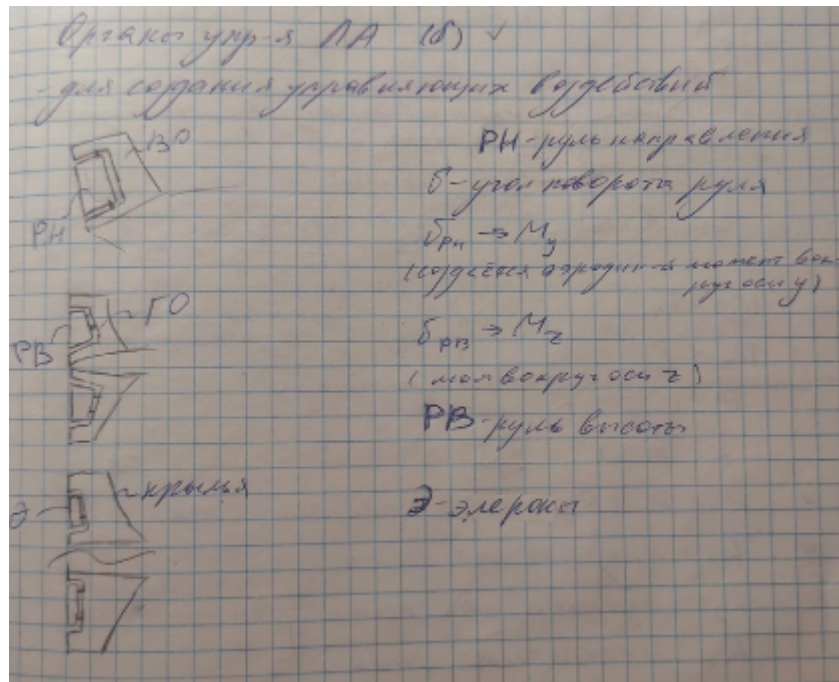 Органы упр-я ЛА (δ) ✓
- для создания управляющих воздействий
ВО
РН
РН - руль направления
δ - угол поворота руля
δрн → My
(создаётся аэродин-й момент вокруг оси y)
ГО
РВ
δрв → Mz
(мом вокруг оси z)
РВ - руль высоты
крылья
Э
Э - элероны